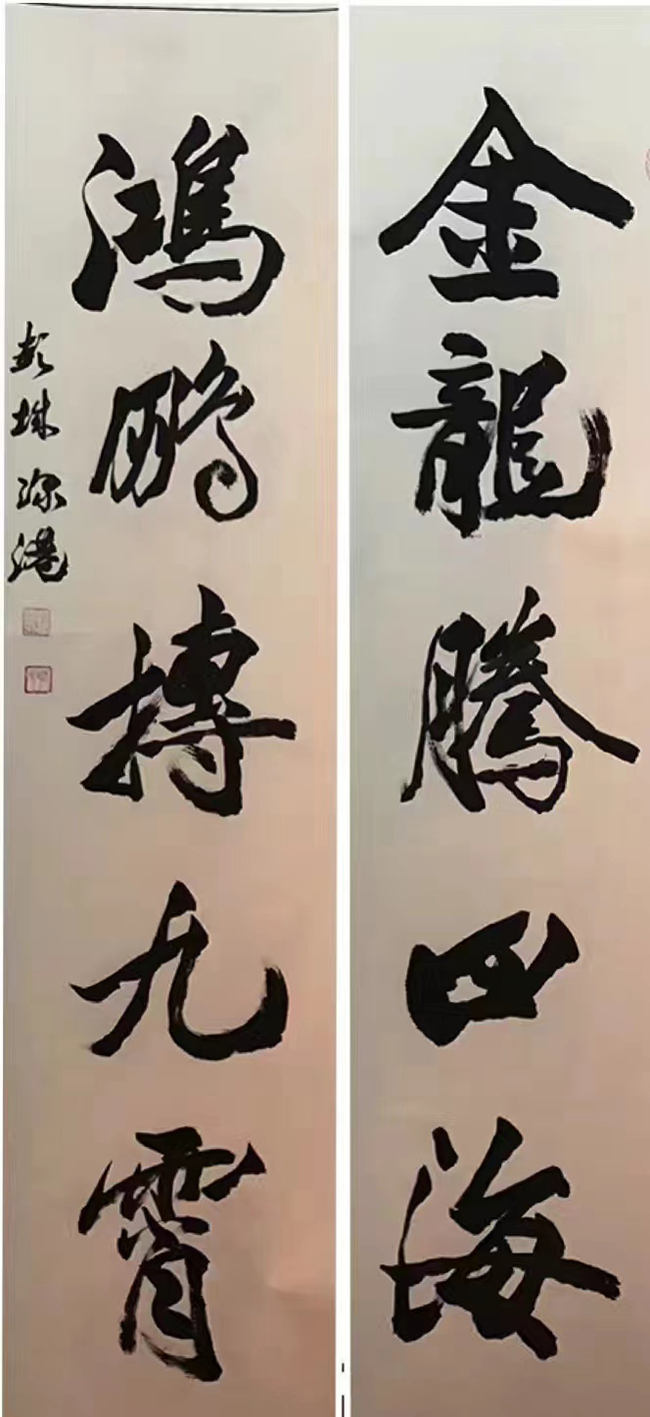 金龍騰四海
鴻鵬搏九霄